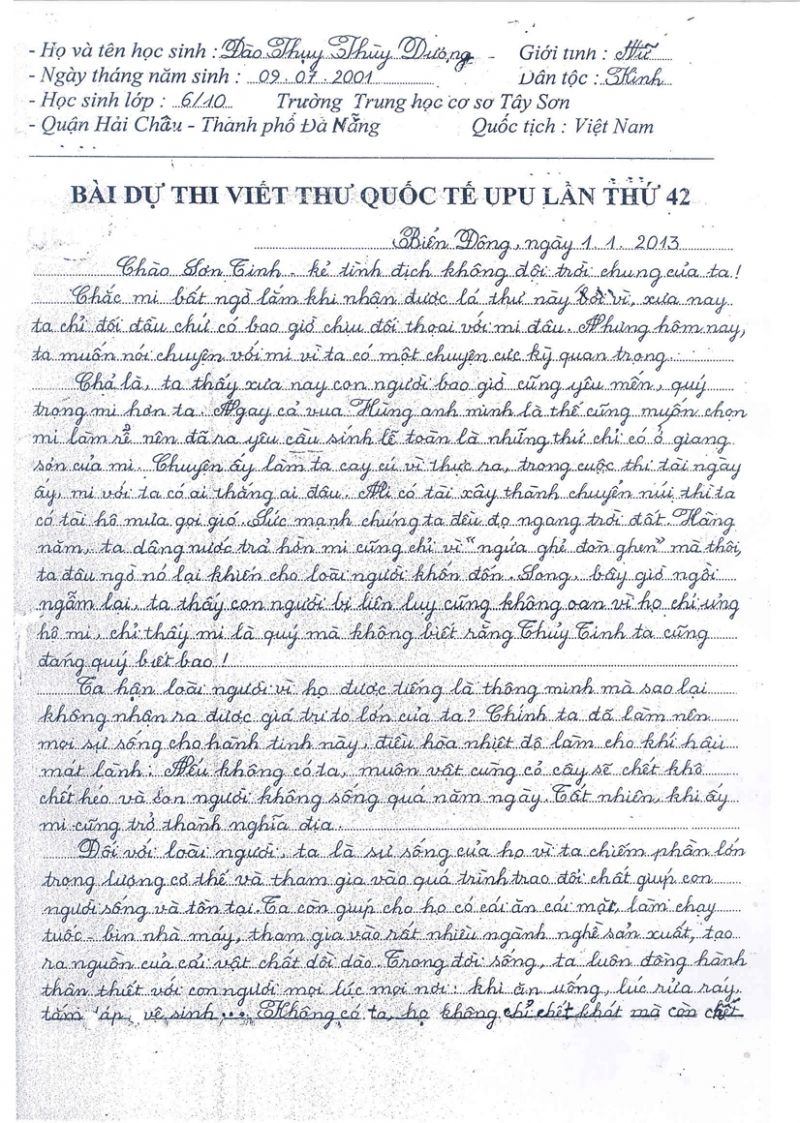 - Họ và tên học sinh : Đào Thụy Thùy Dương - Giới tính : Nữ
- Ngày tháng năm sinh : 09.07.2001 Dân tộc : Kinh
- Học sinh lớp : 6/10 Trường Trung học cơ sơ Tây Sơn
- Quận Hải Châu - Thành phố Đà Nẵng Quốc tịch : Việt Nam
BÀI DỰ THI VIẾT THƯ QUỐC TẾ UPU LẦN THỨ 42
Biển Đông, ngày 1.1.2013
Chào Sơn Tinh - kẻ tình địch không đội trời chung của ta!
Chắc mi bất ngờ lắm khi nhận được lá thư này bởi vì, xưa nay
ta chỉ đối đầu chứ có bao giờ chịu đối thoại với mi đâu. Nhưng hôm nay,
ta muốn nói chuyện với mi vì ta có một chuyện cực kỳ quan trọng.
Chả là, ta thấy xưa nay con người bao giờ cũng yêu mến, quý
trọng mi hơn ta. Ngay cả vua Hùng anh minh là thế cũng muốn chọn
mi làm rể nên đã ra yêu cầu sính lễ toàn là những thứ chỉ có ở giang
sơn của mi. Chuyện ấy làm ta cay cú vì thực ra, trong cuộc thi tài ngày
ấy, mi với ta có ai thắng ai đâu. Mi có tài xây thành chuyển núi thì ta
có tài hô mưa gọi gió. Sức mạnh chúng ta đều đọ ngang trời đất. Hàng
năm, ta dâng nước trả hờn mi cũng chỉ vì "ngứa ghẻ đòn ghen" mà thôi,
ta đâu ngờ nó lại khiến cho loài người khốn đốn. Song, bây giờ ngồi
ngẫm lại, ta thấy con người bị liên lụy cũng không oan vì họ chỉ ủng
hộ mi, chỉ thấy mi là quý mà không biết rằng Thủy Tinh ta cũng
đáng quý biết bao!
Ta hận loài người vì họ được tiếng là thông minh mà sao lại
không nhận ra được giá trị to lớn của ta? Chính ta đã làm nên
mọi sự sống cho hành tinh này, điều hòa nhiệt độ làm cho khí hậu
mát lành. Nếu không có ta, muôn vật cùng cỏ cây sẽ chết khô
chết héo và con người không sống quá năm ngày. Tất nhiên, khi ấy
mi cũng trở thành nghĩa địa.
Đối với loài người, ta là sự sống của họ vì ta chiếm phần lớn
trọng lượng cơ thể và tham gia vào quá trình trao đổi chất giúp con
người sống và tồn tại. Ta còn giúp cho họ có cái ăn cái mặt, làm chạy
tuốc-bin nhà máy, tham gia vào rất nhiều ngành nghề sản xuất, tạo
ra nguồn của cải vật chất dồi dào. Trong đời sống, ta luôn đồng hành
thân thiết với con người mọi lúc mọi nơi: khi ăn uống, lúc rửa ráy,
tắm táp, vệ sinh ... Không có ta, họ không chỉ chết khát mà còn chết